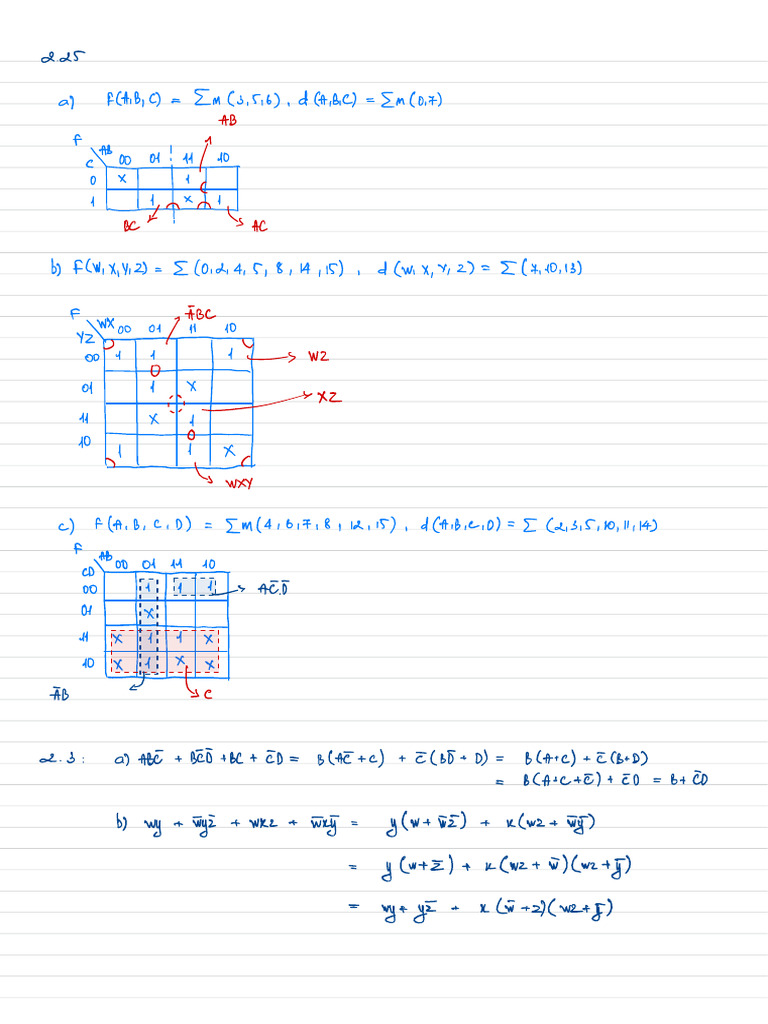 2.25
a) F(A,B,C) = Σm(3,5,6), d(A,B,C) = Σm(0,7)
AB
F
AB 00 01 11 10
C
0 X 1
1 1 X 1
BC AC
b) F(W,X,Y,Z) = Σ(0,2,4,5,8,14,15), d(W,X,Y,Z) = Σ(7,10,13)
F
A̅BC
WX 00 01 11 10
YZ
00 1 1 1 WZ
01 1 X
XZ
11 X 1
10 1 1 X
WXY
c) F(A,B,C,D) = Σm(4,6,7,8,12,15), d(A,B,C,D) = Σ(2,3,5,10,11,14)
F
AB 00 01 11 10
CD
00 1 1 1 AC̅.D̅
01 X
11 X 1 1 X
10 X 1 X X
A̅B C
2.3: a) ABC̅ + BC̅D̅ + BC + C̅D = B(AC̅+C) + C̅(BD̅+D) = B(A+C) + C̅(B+D)
= B(A+C+C̅) + C̅D = B+C̅D
b) wy + w̅yz̅ + wxz + w̅xy̅ = y(w+w̅z̅) + x(wz+w̅y̅)
= y(w+z̅) + x(wz+w̅)(wz+y̅)
= wy + yz̅ + x(w̅+z)(wz+y̅)